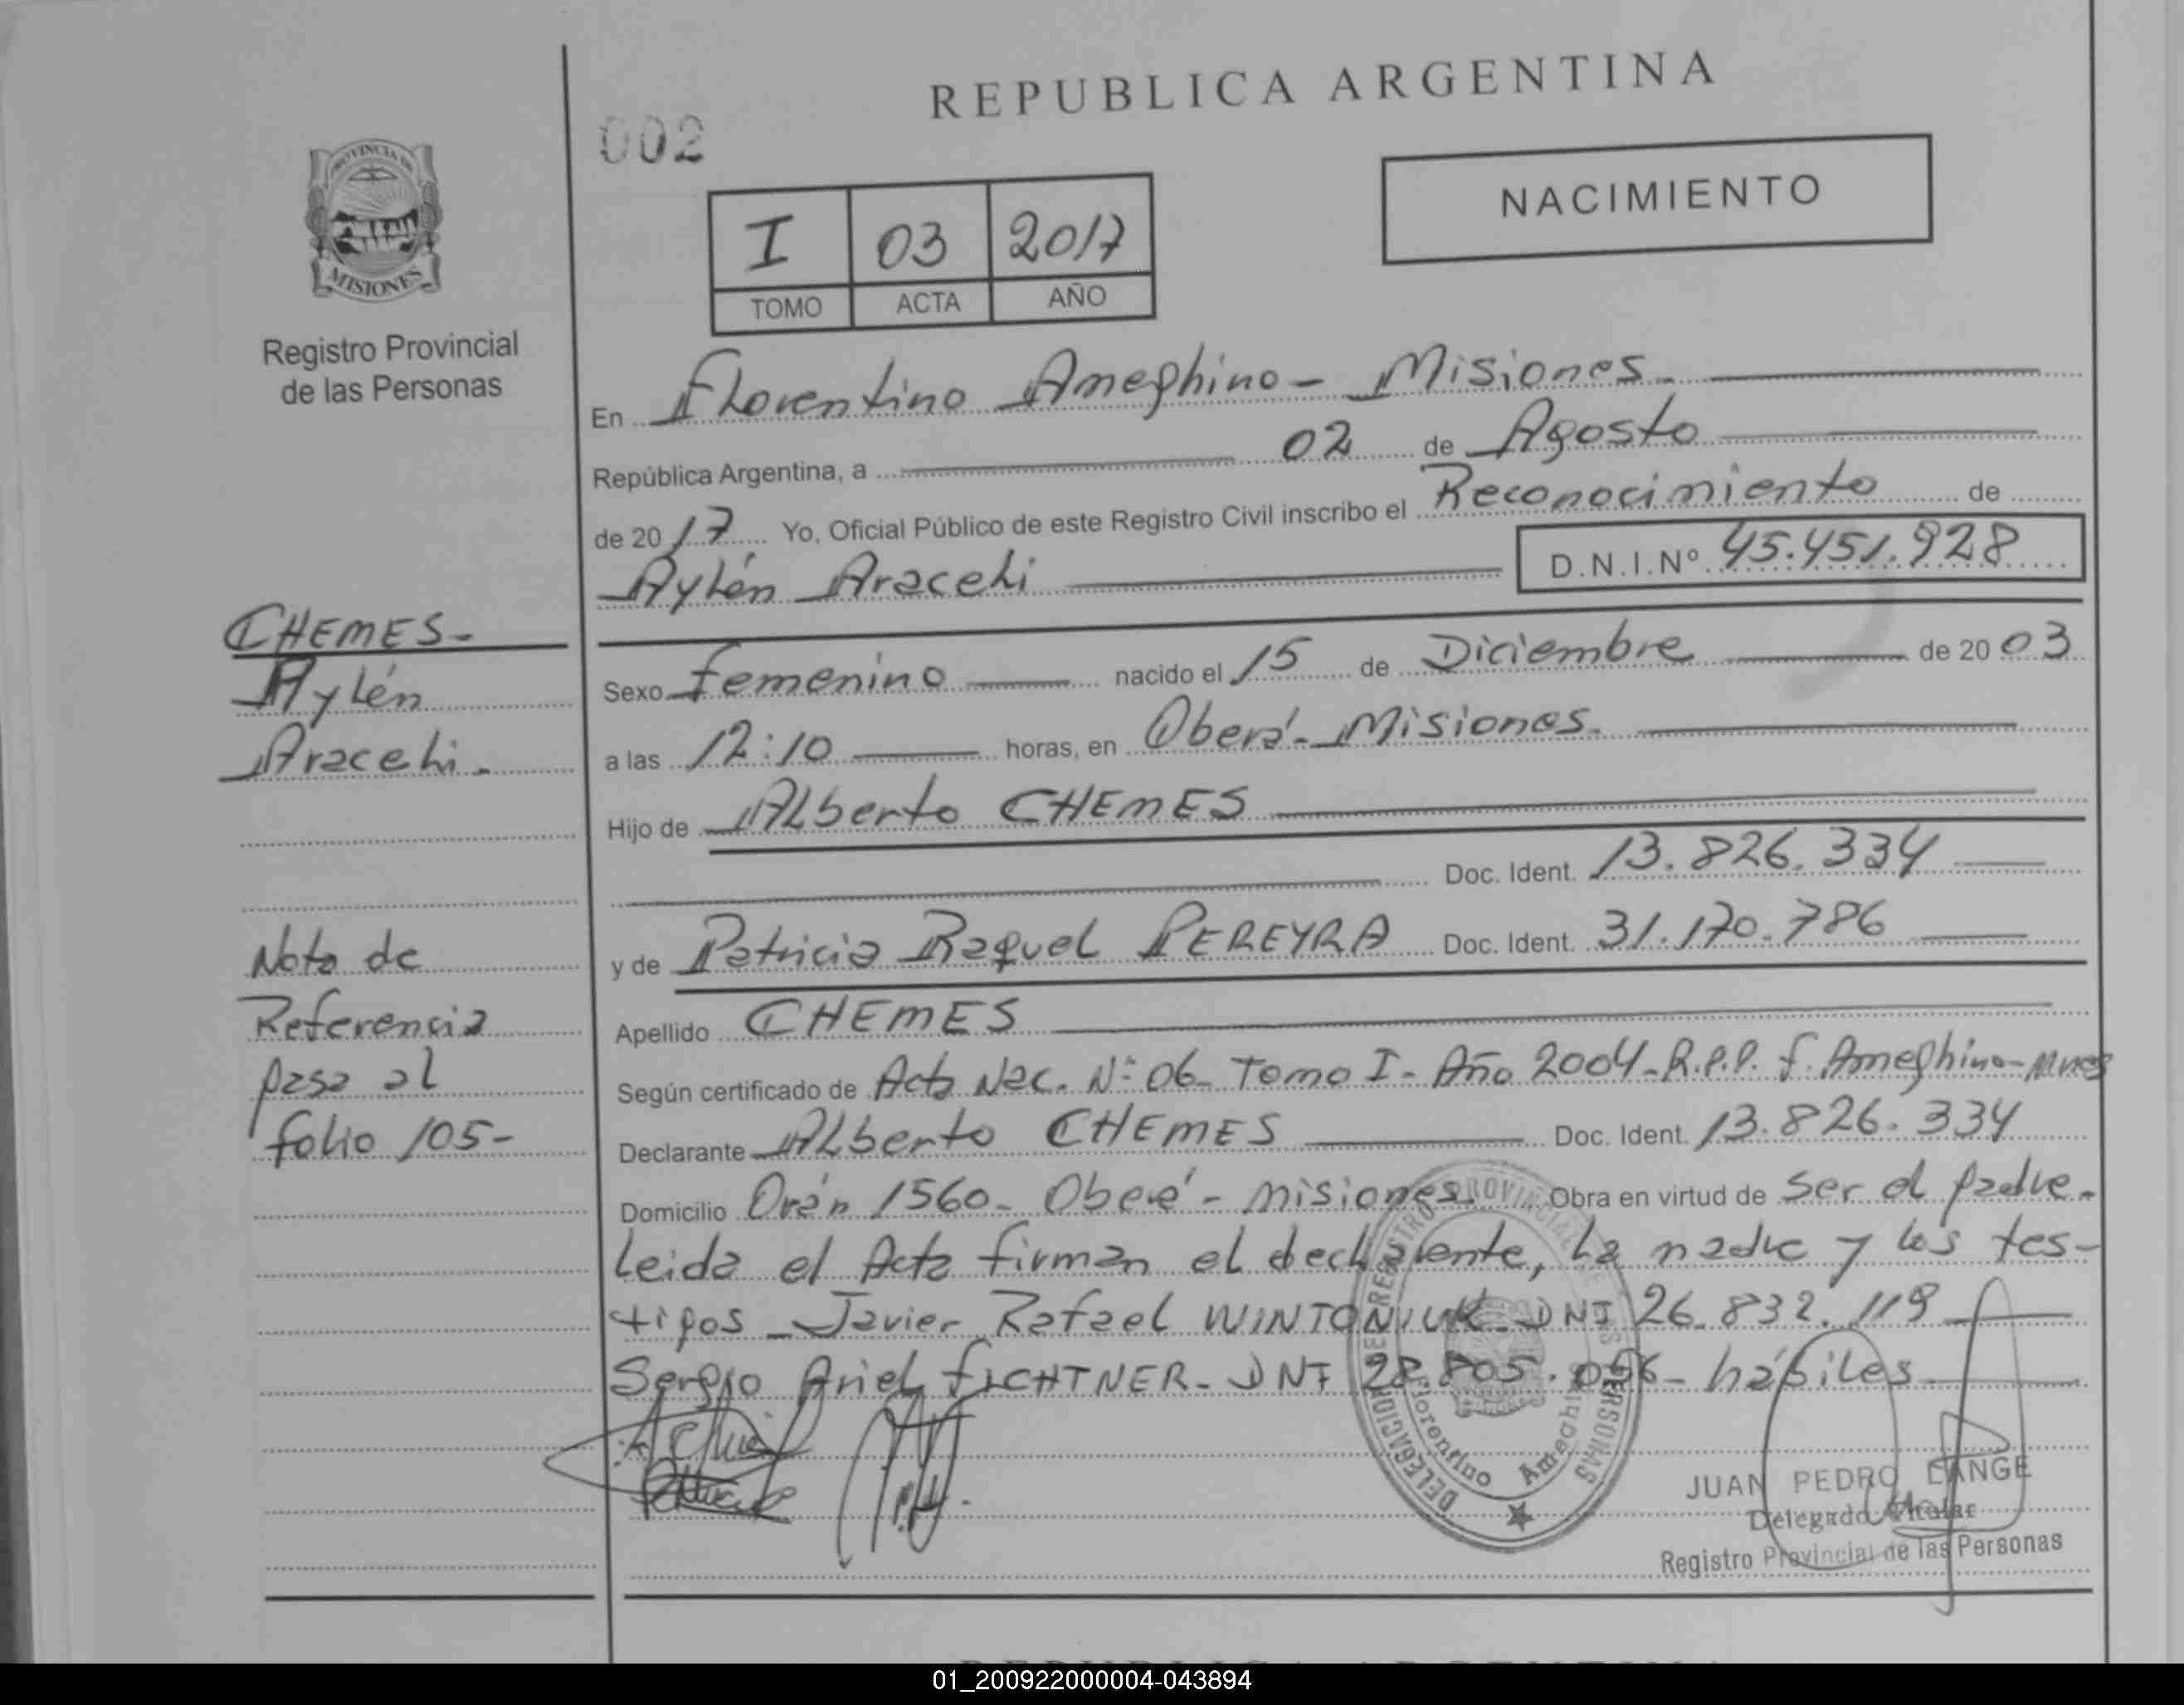 REPUBLICA ARGENTINA
002
PROVINCIA DE
MISIONES
Registro Provincial
de las Personas
NACIMIENTO
I 03 2017
TOMO ACTA AÑO
En Florentino Ameghino - Misiones.
República Argentina, a 02 de Agosto
de 2017 Yo, Oficial Público de este Registro Civil inscribo el Reconocimiento de
Aylén Araceli D.N.I.Nº 45.451.928
CHEMES-
Aylén
Araceli.
Sexo femenino nacido el 15 de Diciembre de 2003
a las 12:10 horas, en Oberá - Misiones.
Hijo de Alberto CHEMES
Doc. Ident. 13.826.334
y de Patricia Raquel PEREYRA Doc. Ident. 31.170.786
Nota de
Referencia
pasa al
folio 105-
Apellido CHEMES
Según certificado de Acta Nac. Nº 06 Tomo I - Año 2004 - R.P.P. f. Ameghino - Mnes
Declarante Alberto CHEMES Doc. Ident. 13.826.334
Domicilio Orán 1560 - Oberá - misiones. Obra en virtud de ser el padre.
Leida el Acta firman el declarante, la madre y los tes-
tigos Javier Rafael WINTONIUK DNI 26.832.119
Sergio Ariel FICHTNER - DNI 28.805.056 - hábiles
DELEGACION REGISTRO PROVINCIAL DE LAS PERSONAS
Florentino Ameghino
JUAN PEDRO LANGE
Delegado Titular
Registro Provincial de las Personas
01_200922000004-043894